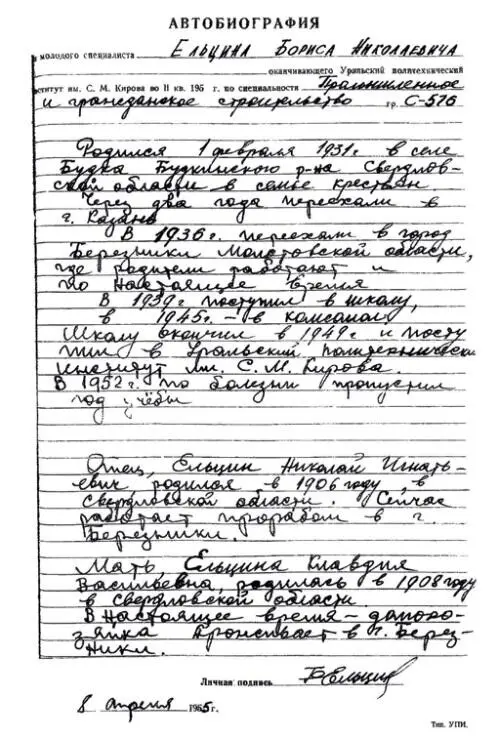 АВТОБИОГРАФИЯ
молодого специалиста Ельцина Бориса Николаевича
оканчивающего Уральский политехнический
институт им. С. М. Кирова во II кв. 195 г. по специальности Промышленное
и гражданское строительство гр. С-516
Родился 1 февраля 1931 г. в селе
Будка Будкинского р-на Свердлов-
ской области в семье крестьян
Через два года переехали в
г. Казань
В 1936 г. переехали в город
Березники Молотовской области,
где родители работают и
по настоящее время
В 1939 г поступил в школу,
в 1945 г. – в комсомол
Школу окончил в 1949 г и посту
пил в Уральский политехнический
институт им. С. М. Кирова.
В 1952 г. по болезни пропустил
год учёбы
Отец, Ельцин Николай Игнать-
евич родился в 1906 году, в
Свердловской области. Сейчас
работает прорабом в г.
Березники.
Мать, Ельцина Клавдия
Васильевна, родилась в 1908 году
в Свердловской области.
В настоящее время – домохо-
зяйка Проживает в г. Берез-
ники.
Личная подпись БЕльцин
8 апреля 1955 г.
Тип. УПИ.